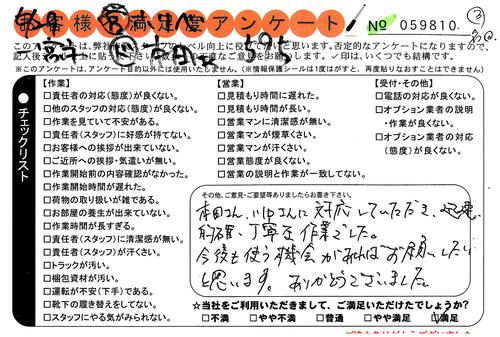 お客様不満足度アンケート
№ 059810
このアンケートは、弊社
レベル向上に役
て行きたいと思います。否定的なアンケートになりますので、
記入後
ご意見をお願いします。✓印は、いくつでも結構です。
※このアンケートは、アンケート目的以外には使用いたしません。(※情報保護シールは1度はがすと、再度貼りなおすことはできません)
チェックリスト
【作業】
□責任者の対応(態度)が良くない。
□他のスタッフの対応(態度)が良くない。
□作業を見ていて不安がある。
□責任者(スタッフ)に好感が持てない。
□お客様への挨拶が出来ていない。
□ご近所への挨拶・気遣いが無い。
□作業開始前の内容確認がなかった。
□作業開始時間が遅れた。
□荷物の取り扱いが雑である。
□お部屋の養生が出来ていない。
□作業時間が長すぎる。
□責任者(スタッフ)に清潔感が無い。
□責任者(スタッフ)が汗くさい。
□トラックが汚い。
□梱包資材が汚い。
□運転が不安(下手)である。
□靴下の履き替えをしてない。
□スタッフにやる気がみられない。
【営業】
□見積もり時間に遅れた。
□見積もり時間が長い。
□営業マンに清潔感が無い。
□営業マンが煙草くさい。
□営業マンが汗くさい。
□営業態度が良くない。
□営業の説明と作業が一致してない。
【受付・その他】
□電話の対応が良くない。
□オプション業者の説明
・作業が良くない。
□オプション業者の対応
(態度)が良くない。
その他、ご意見・ご要望等ありましたらお書き下さい。
本田さん、川中さんに対応していただき、迅速、
的確、丁寧な作業でした。
今後も使う機会があればお願いしたい
と思います。ありがとうございました。
☆当社をご利用いただきまして、ご満足いただけたでしょうか?
□不満 □やや不満 □普通 □やや満足 ☑満足